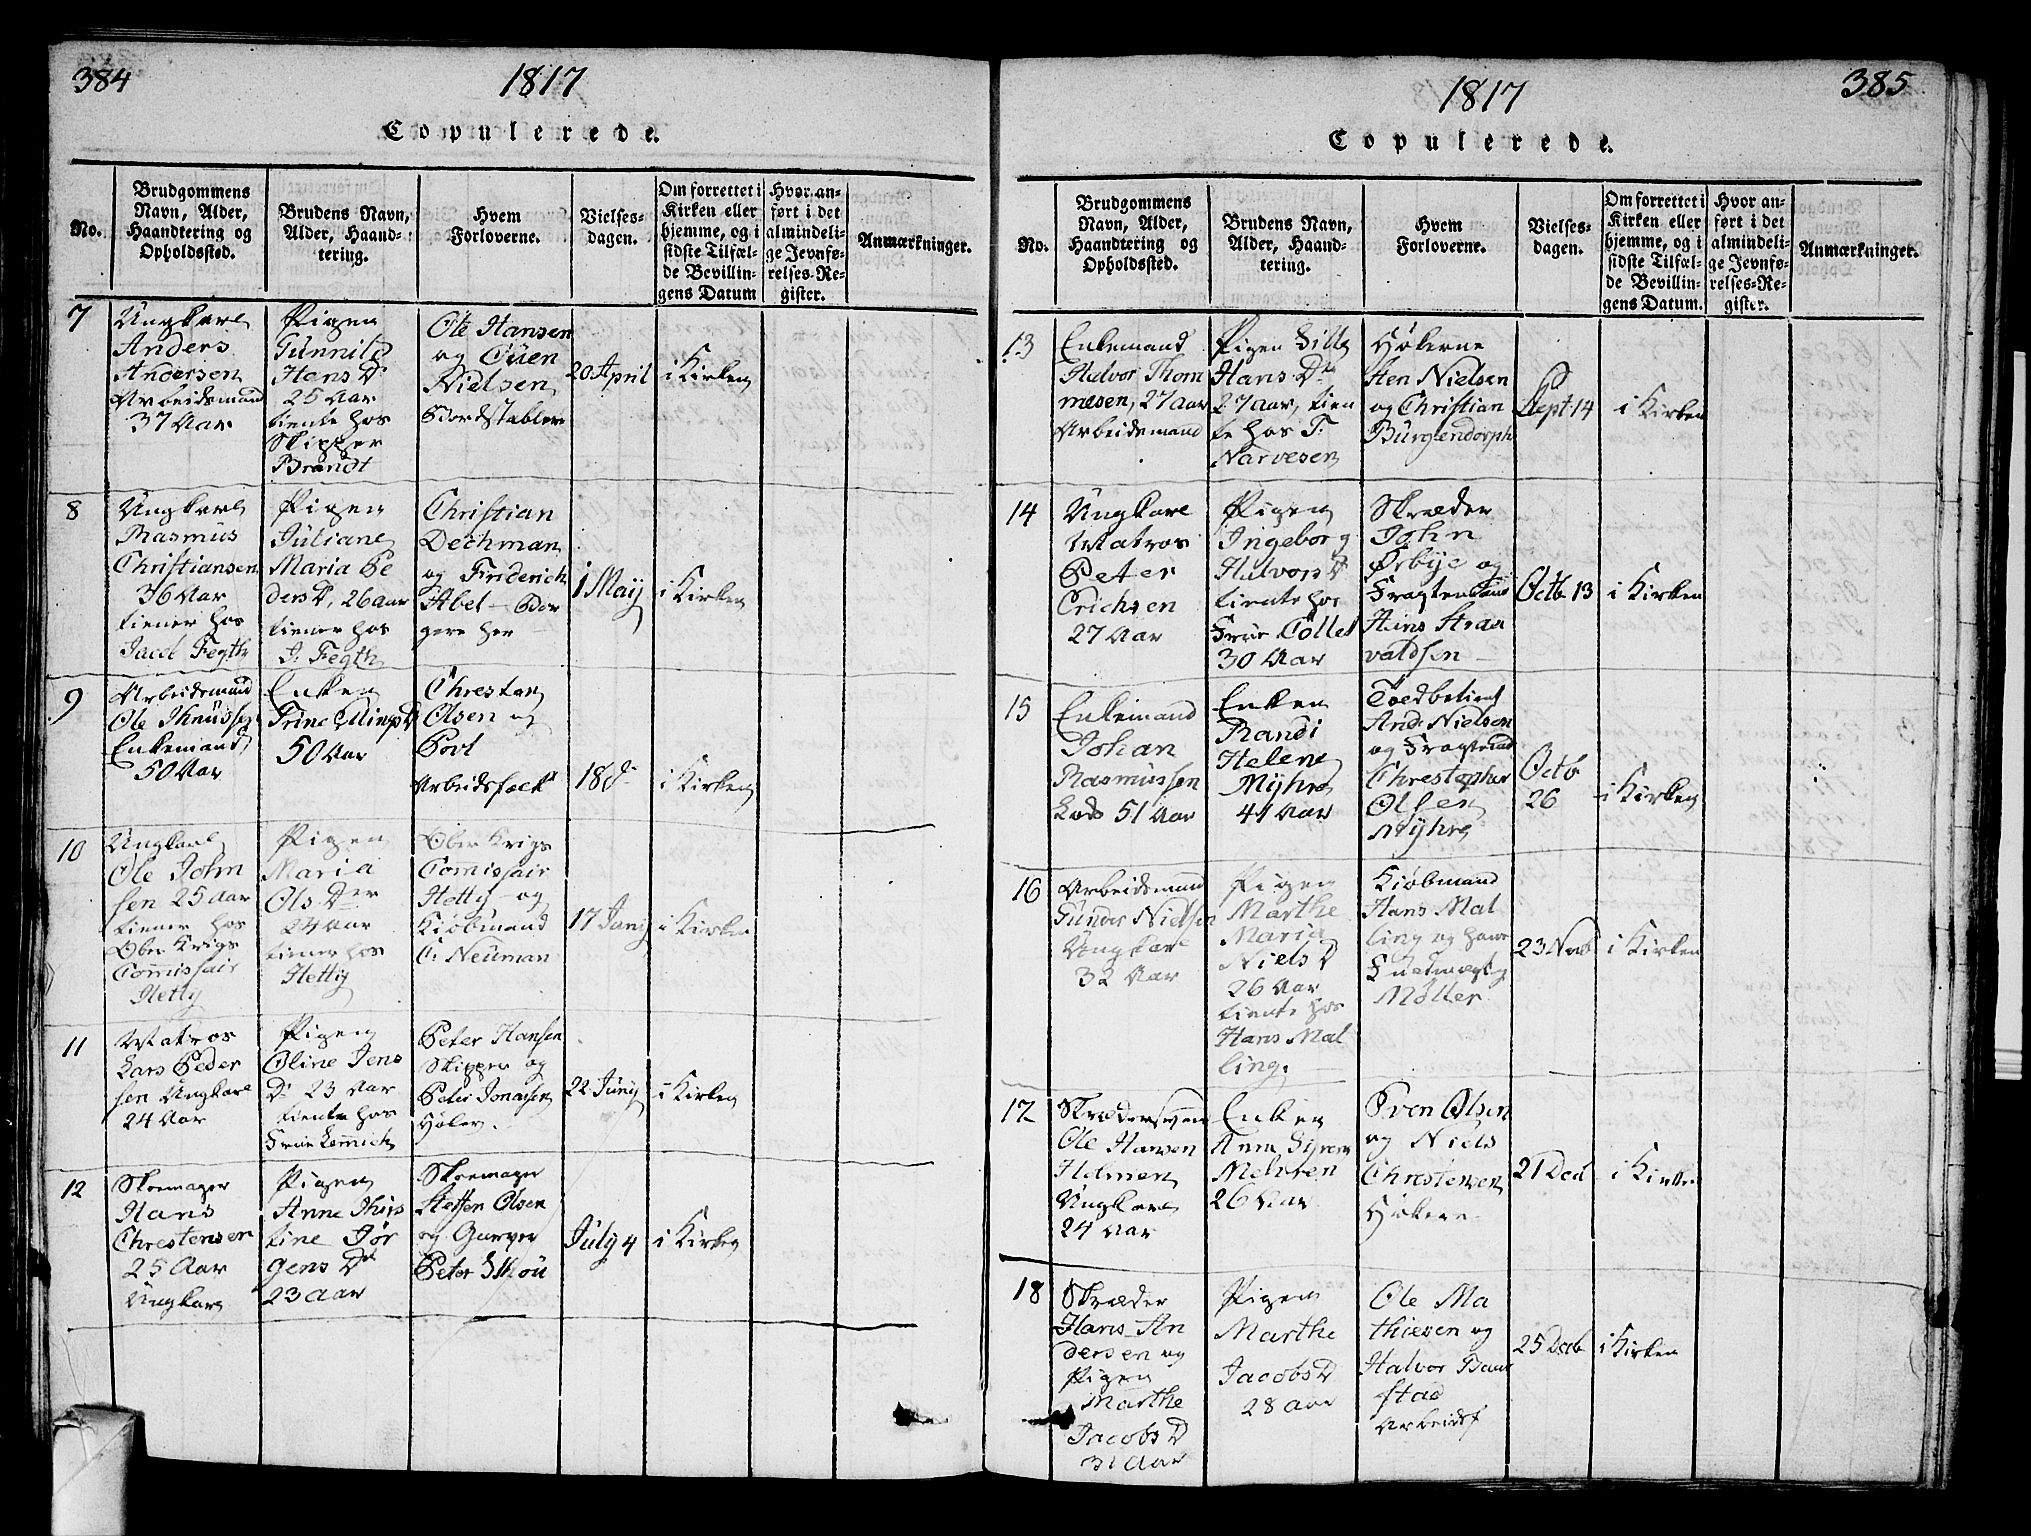 384
1817
Copulerede.
No.
Brudgommens
Navn, Alder,
Haandtering og
Opholdssted.
Brudens Navn,
Alder, Haand-
tering.
Hvem
Forloverne.
Vielses-
dagen.
Om forrettet i
Kirken eller
hjemme, og i
sidste Tilfæl-
de Bevillin-
gens Datum
Hvor an-
ført i det
almindeli-
ge Jevnfø-
relses-Re-
gister.
Anmærkninger.
7
Ungkarl
Anders
Andersen
Arbeidsmand
37 Aar
Pigen
Gunnild
Hans D.
25 Aar
tiente hos
Skipper
Brandt
Ole Hansen
og
Nielsen
Bordstabler
20 April
i Kirken
8
Ungkarl
Rasmus
Christiansen
36 Aar
tiener hos
Jacob Fegth
Pigen
Juliane
Maria Pe
ders D, 26 aar
tiener hos
J. Fegth
Christian
Dechman
og Friderich
Abel - Bor
gere her
1 Maij
i Kirken
9
Arbeidsmand
Ole Knudssen
Enkemand
50 Aar
Enken
Trine
50 Aar
Christen
Olsen og
Povl
Arbeidsfolk
18 d
i Kirken
10
Ungkarl
Ole John
sen 25 Aar
tiener hos
Ober Krigs
Comissair
Hetty
Pigen
Maria
Ols Der
24 Aar
tiener hos
Hettig
Ober Krigs
Comissair
Hetty - og
Kiøbmand
C. Neuman
17 Junij
i Kirken
11
Matros
Lars Peder
sen Ungkarl
24 Aar
Pigen
Oline Jens
D. 23 Aar
tiente hos
Frue Lemmich
Peter Hansen
Skipper og
Peter Jonassen
Høker.
22 Junij
i Kirken
12
Skoemager
Hans
Christensen
25 Aar
Ungkarl
Pigen
Anne Kirs
tine Jør
gens Dt
23 Aar
Skoemager
Steffen Olsen
og Garver
Peter Skou
July 4
i Kirken
385
1817
Copulerede.
No.
Brudgommens
Navn, Alder,
Haandtering og
Opholdssted.
Brudens Navn,
Alder, Haand-
tering.
Hvem
Forloverne.
Vielses-
dagen.
Om forrettet i
Kirken eller
hjemme, og i
sidste Tilfæl-
de Bevillin-
gens Datum.
Hvor an-
ført i det
almindeli-
ge Jevnfø-
relses-Re-
gister.
Anmærkninger.
13
Enkemand
Halvor Thom
mesen, 27 aar
Arbeidsmand
Pigen Sille
Hans Dr
27 aar, tien
te hos T.
Narvesen
Høkerne
Sten Nielsen
og Christian
Bürgendorph
Sept 14
i Kirken
14
Ungkarl
Matros
Peter
Erichsen
27 Aar
Pigen
Ingeborg
Halvors D
tiente hos
Frue Collet
30 Aar
Skræder
John
Ørbye og
Hans Straa
valdsen
Octb 13
i Kirken
15
Enkemand
Johan
Rasmussen
Lods 51 Aar
Enken
Randi
Helene
Myhre
41 Aar
Toedbetient
And. Nielsen
og Fragtmand
Christopher
Olsen
Myhre
Octb
26
i Kirken
16
Arbeidsmand
Gunder Nielsen
Ungkarl
32 Aar
Pigen
Marthe
Maria
Niels D
26 Aar
tiente hos
Hans Mal
ling.
Kiøbmand
Hans Mal
ling og hans
Fuldmægtig
Møller
23 Novb
i Kirken
17
Skrædersvend
Ole Hansen
Holmen
Ungkarl
24 Aar
Enken
Anna
26 Aar
Sven Olsen
og Niels
Christensen
Høkere
21 Decb
i Kirken
18
Skræder
Hans An
dersen og
Pigen
Marthe
Jacobs D
31 Aar
Pigen
Marthe
Jacobs D
28 aar
Ole Ma
thiesen og
Halvor
stad
Arbeidsf
25 Decb
i Kirken